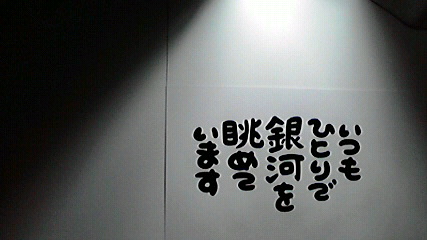 いつも
ひとりで
銀河を
眺めて
います